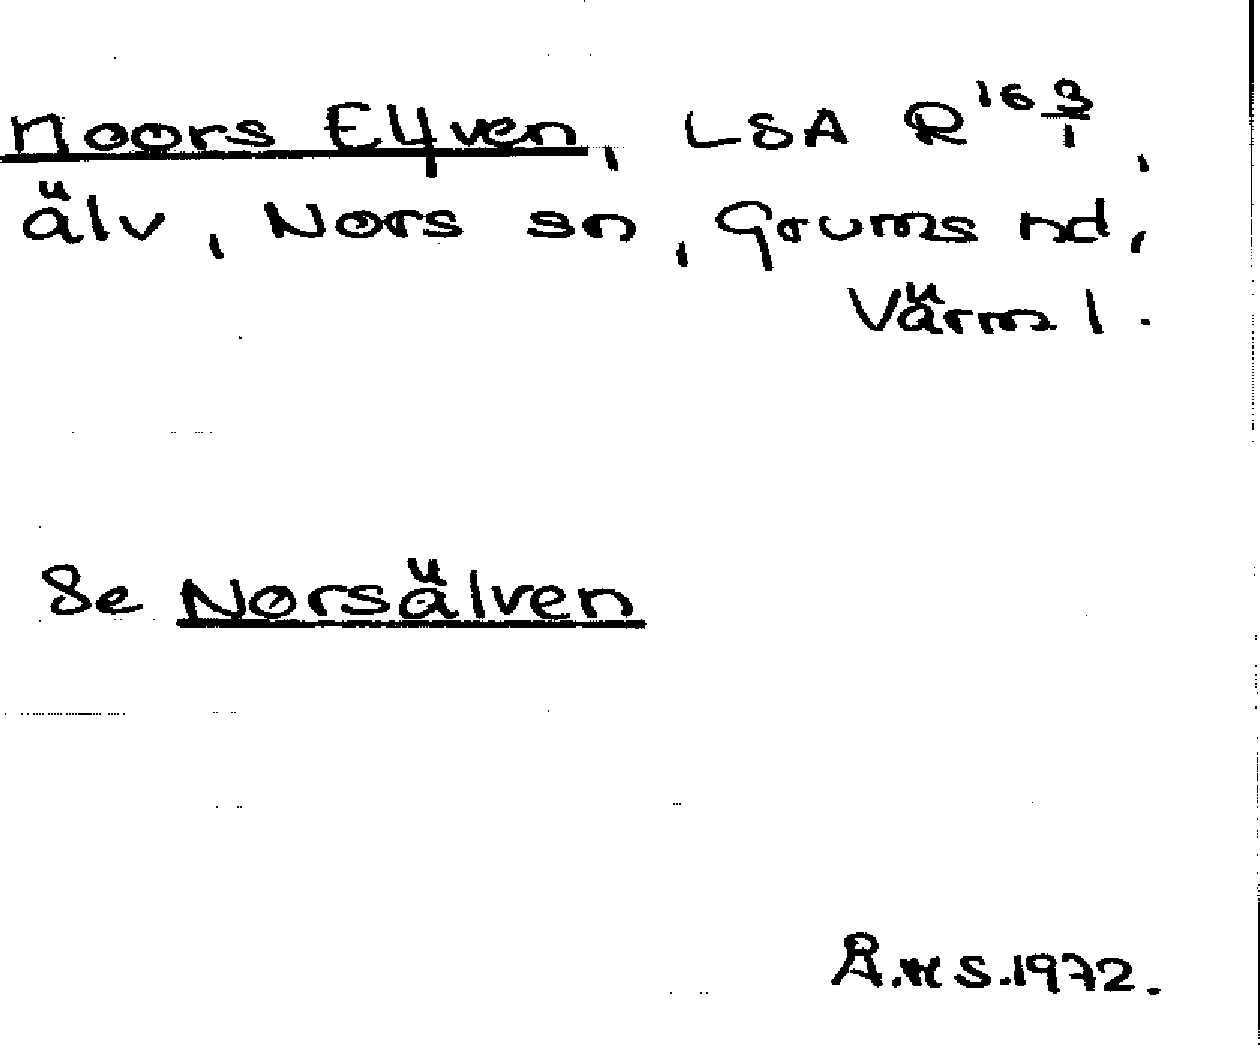 Noors Elfven, LSA R 16 3/1,
älv, Nors sn, Grums hd,
Värml.
Se Norsälven
Å.H S.1972.